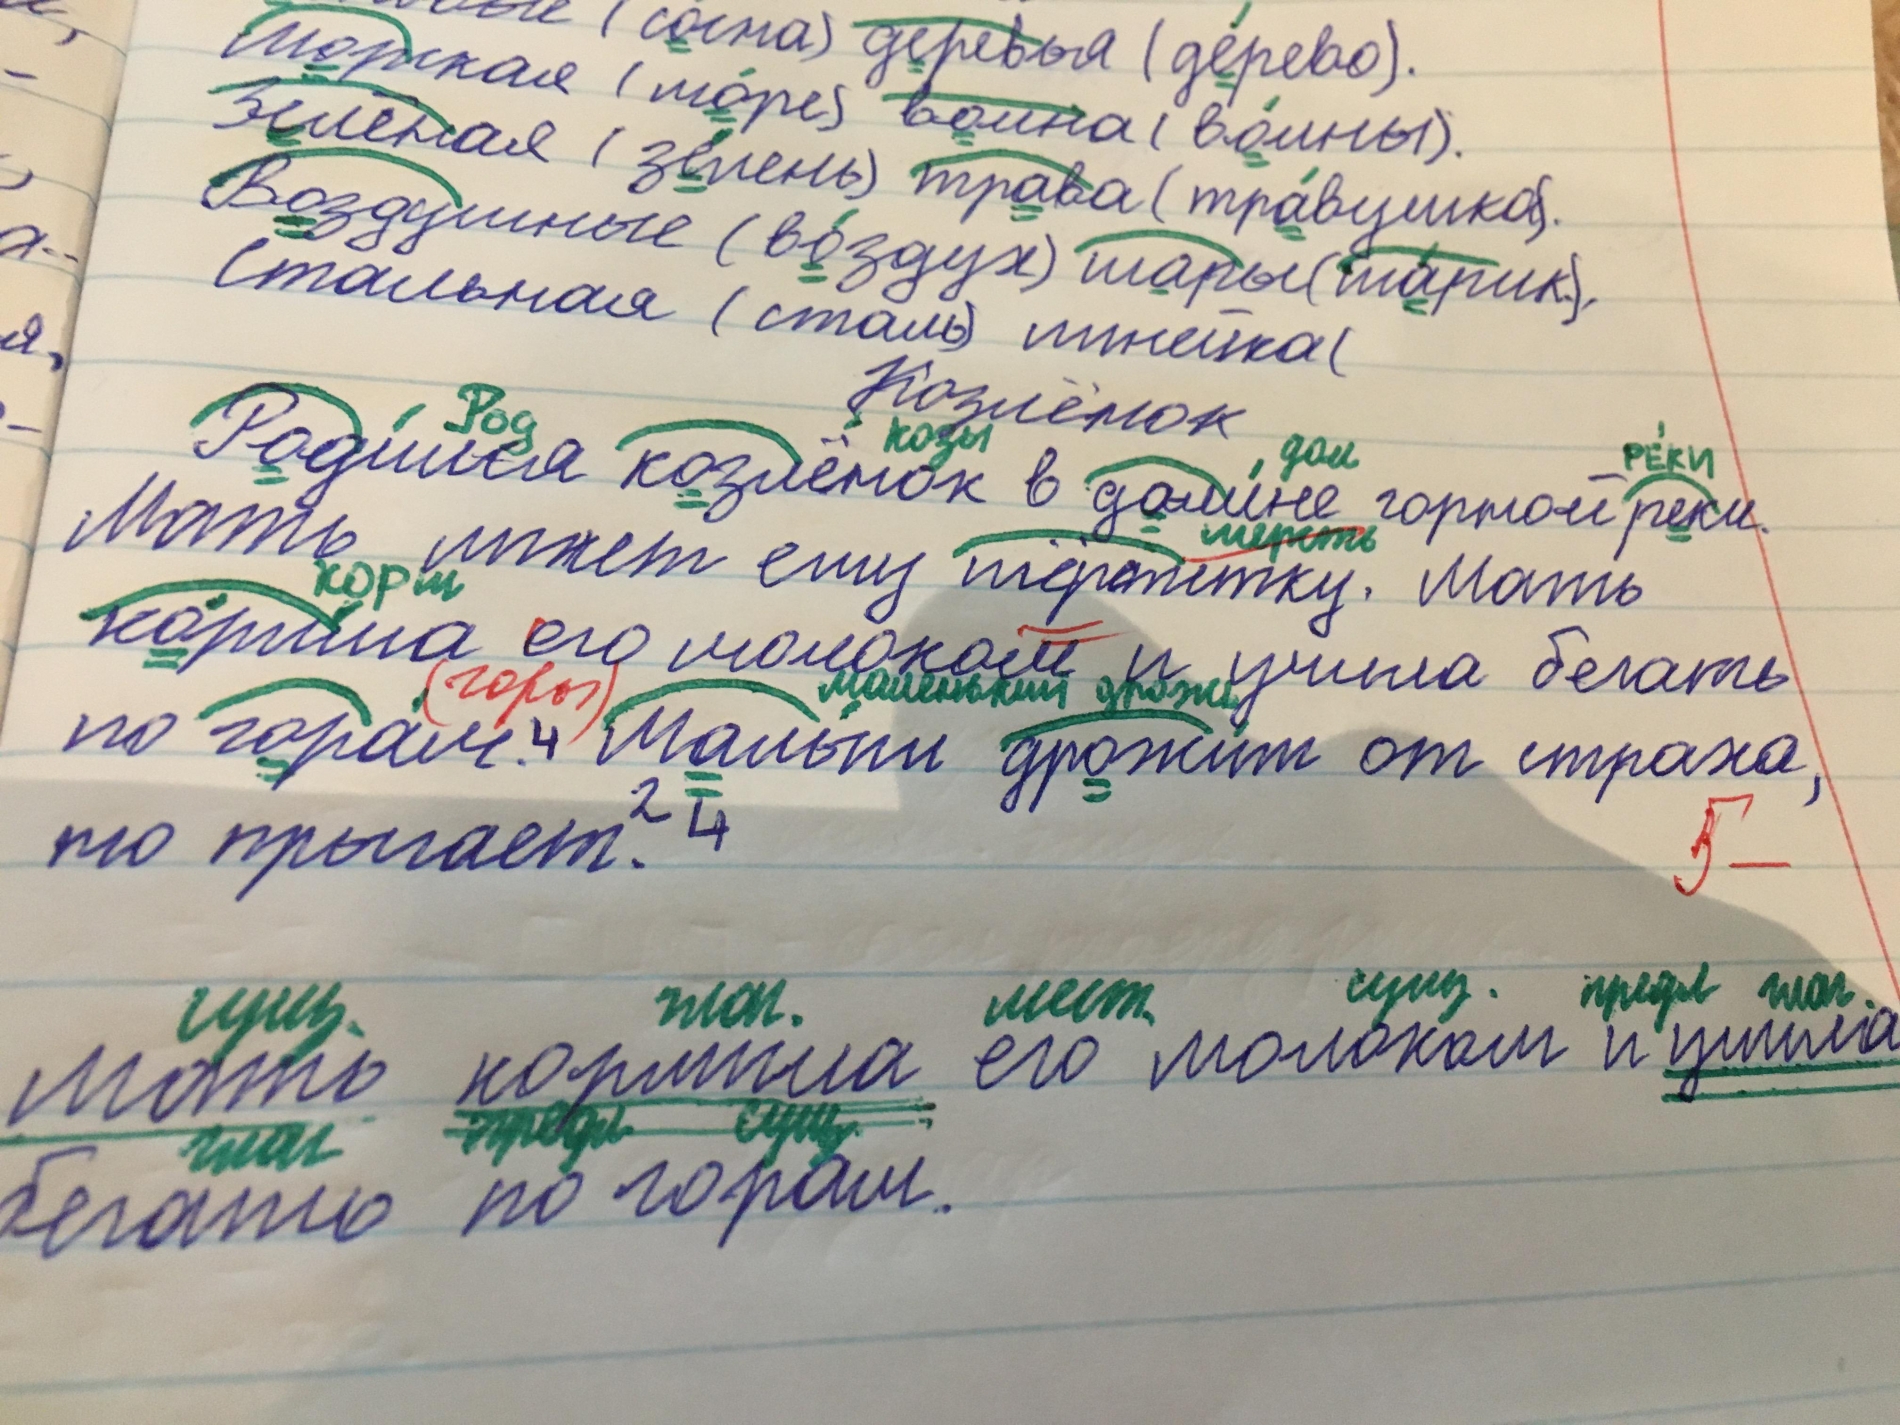 (сосна) деревья (дерево).
Морская (море) волна (волны).
Зелёная (зелень) трава (травушка).
Воздушные (воздух) шары (шарик).
Стальная (сталь) линейка (
Козлёнок
Род козы дол ре́ки
Родился козлёнок в долине горной реки.
шерсть
Мать лижет ему шёрстку. Мать
корм
кормила его молоком и учила бегать
(горы) маленький дрожь
по горам. 4 Малыш дрожит от страха,
но прыгает. 2 4
5-
сущ. глаг. мест. сущ. предл глаг.
Мать кормила его молоком и учила
глаг предл сущ.
бегать по горам.